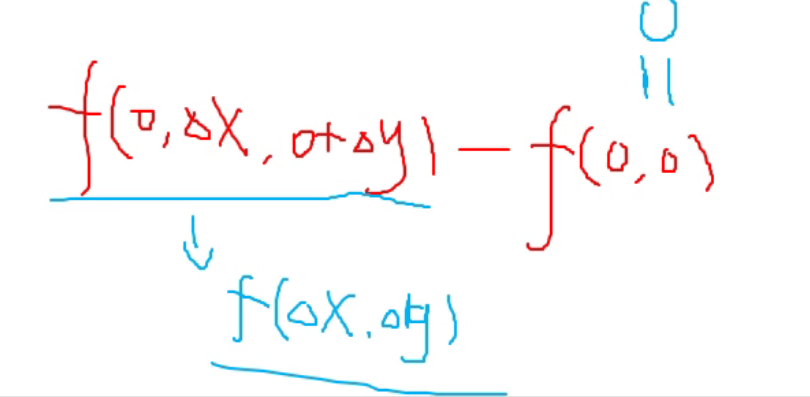 0
||
f(0,ΔX, 0+Δy) — f(0,0)
↓
f(ΔX,Δy)